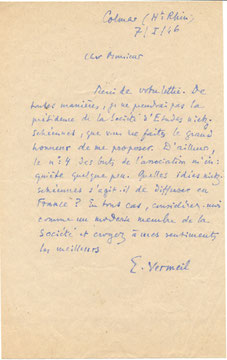 Colmar (Ht Rhin)
7/I/46
Cher Monsieur
Merci de votre lettre. De
toutes manières, je ne prendrai pas la
présidence de la Société d'Etudes nietz-
schéennes, que vous me faites le grand
honneur de me proposer. D'ailleurs,
le n° 4 des buts de l'association m'in-
quiète quelque peu. Quelles idées nietz-
schéennes s'agit-il de diffuser en
France? En tout cas, considérez-moi
comme un modeste membre de la
Société et croyez à mes sentiments
les meilleurs
E. Vermeil